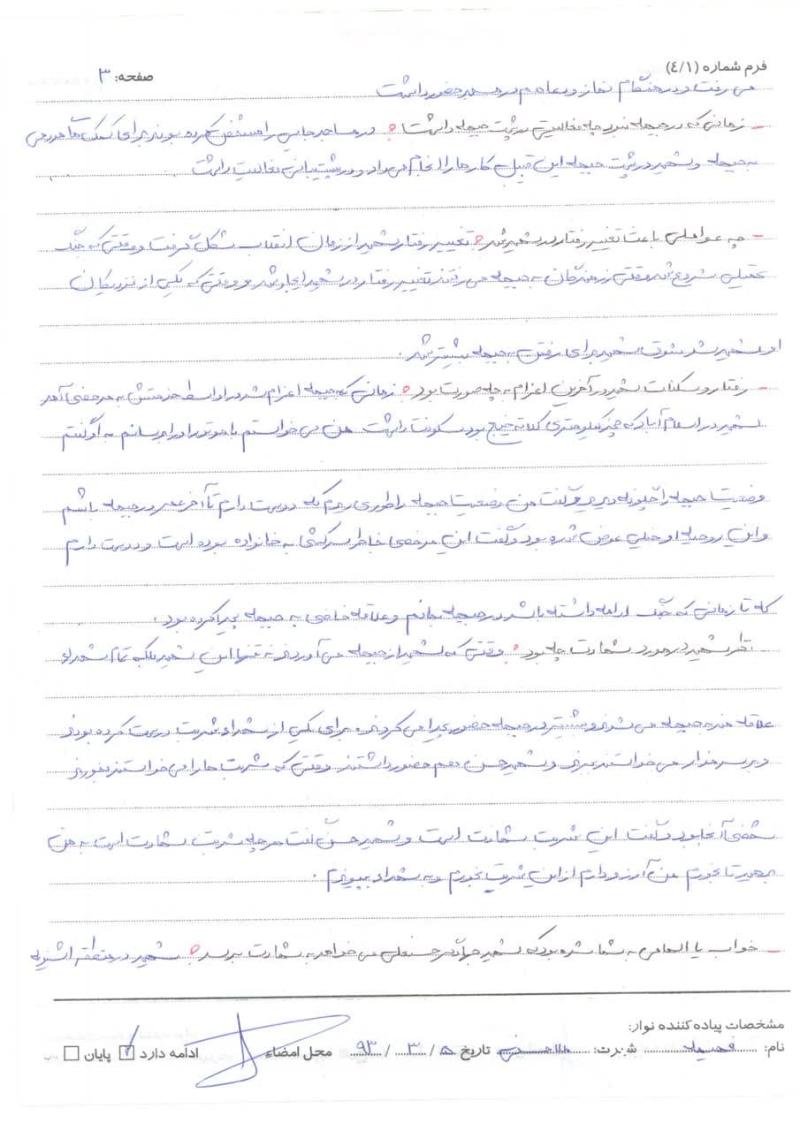 فرم شماره (٤/١)
صفحه: ٣
می رفت و در هنگام نماز و دعا هم در مسجد حضور داشت
– زمانی که در جبهه نبود چه فعالیتی در پشت جبهه داشت؟ در مساجد جایی را مشخص کرده بودند برای کمک های مردمی
به جبهه و شهید در پشت جبهه این قبیل کارها را انجام می داد و در پشتیبانی فعالیت داشت
– چه عواملی باعث تغییر رفتار در شهید شد؟ تغییر رفتار شهید از زمان انقلاب شکل گرفت و وقتی که جنگ
تحمیلی شروع شد وقتی رزمندگان به جبهه می رفتند تغییر رفتار در شهید ایجاد شد و وقتی که یکی از نزدیکان
او شهید شد شوق شهید برای رفتن به جبهه بیشتر شد.
– رفتار و سکنات شهید در آخرین اعزام به چه صورت بود؟ زمانی که جبهه اعزام شد در اواسط خدمتش به مرخصی آمد
شهید در اسلام آباد که چند کیلومتری کلاته خیج بود سکونت داشت من می خواستم با موتور او را برسانم به او گفتم
وضعیت جبهه را چگونه دیدی و گفت من وضعیت جبهه را طوری دیدم که دوست دارم تا آخر عمر در جبهه باشم
و این روحیه او خیلی عوض شده بود و گفت این مرخصی خاطر سرکشی به خانواده بوده است و دوست دارم
که تا زمانی که جنگ ادامه داشته باشد در جبهه بمانم و علاقه خاصی به جبهه پیدا کرده بود.
نظر شهید در مورد شهادت چه بود؟ وقتی که شهید از جبهه می آوردند نه تنها این شهید بلکه تمام شهدا
علاقه مند جبهه می شدند و بیشتر در جبهه حضور پیدا می کردند. برای یکی از شهداء شربت درست کرده بودند
و بر سر مزار می خواستند ببرند و شهید حسن هم حضور داشتند وقتی که شربت ها را می خواستند بخورند
شخصی آنجا بود و گفت این شربت شهادت است و شهید حسن گفت هر چه شربت شهادت است به من
بدهید تا بخورم من آرزو دارم از این شربت بخورم و به شهداء بپیوندم.
– خواب یا الهامی به شما شده بود که شهید حسنعلی می خواهد به شهادت برسد؟ شهید در منطقه اشنویه
مشخصات پیاده کننده نوار:
نام: فهیمه شهرت: تاریخ ٥ / ٣ / ٩٣ محل امضاء ادامه دارد پایان